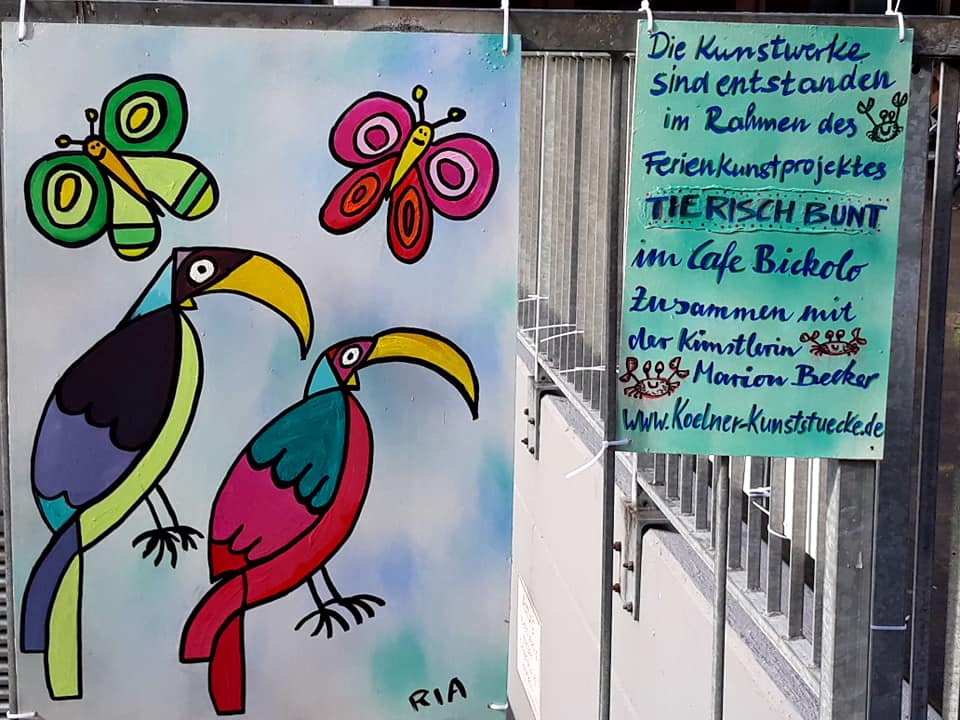 RIA
Die Kunstwerke
sind entstanden
im Rahmen des
Ferienkunstprojektes
TIERISCH BUNT
im Cafe Bickolo
Zusammen mit
der Künstlerin
Marion Becker
www.Koelner-Kunststuecke.de